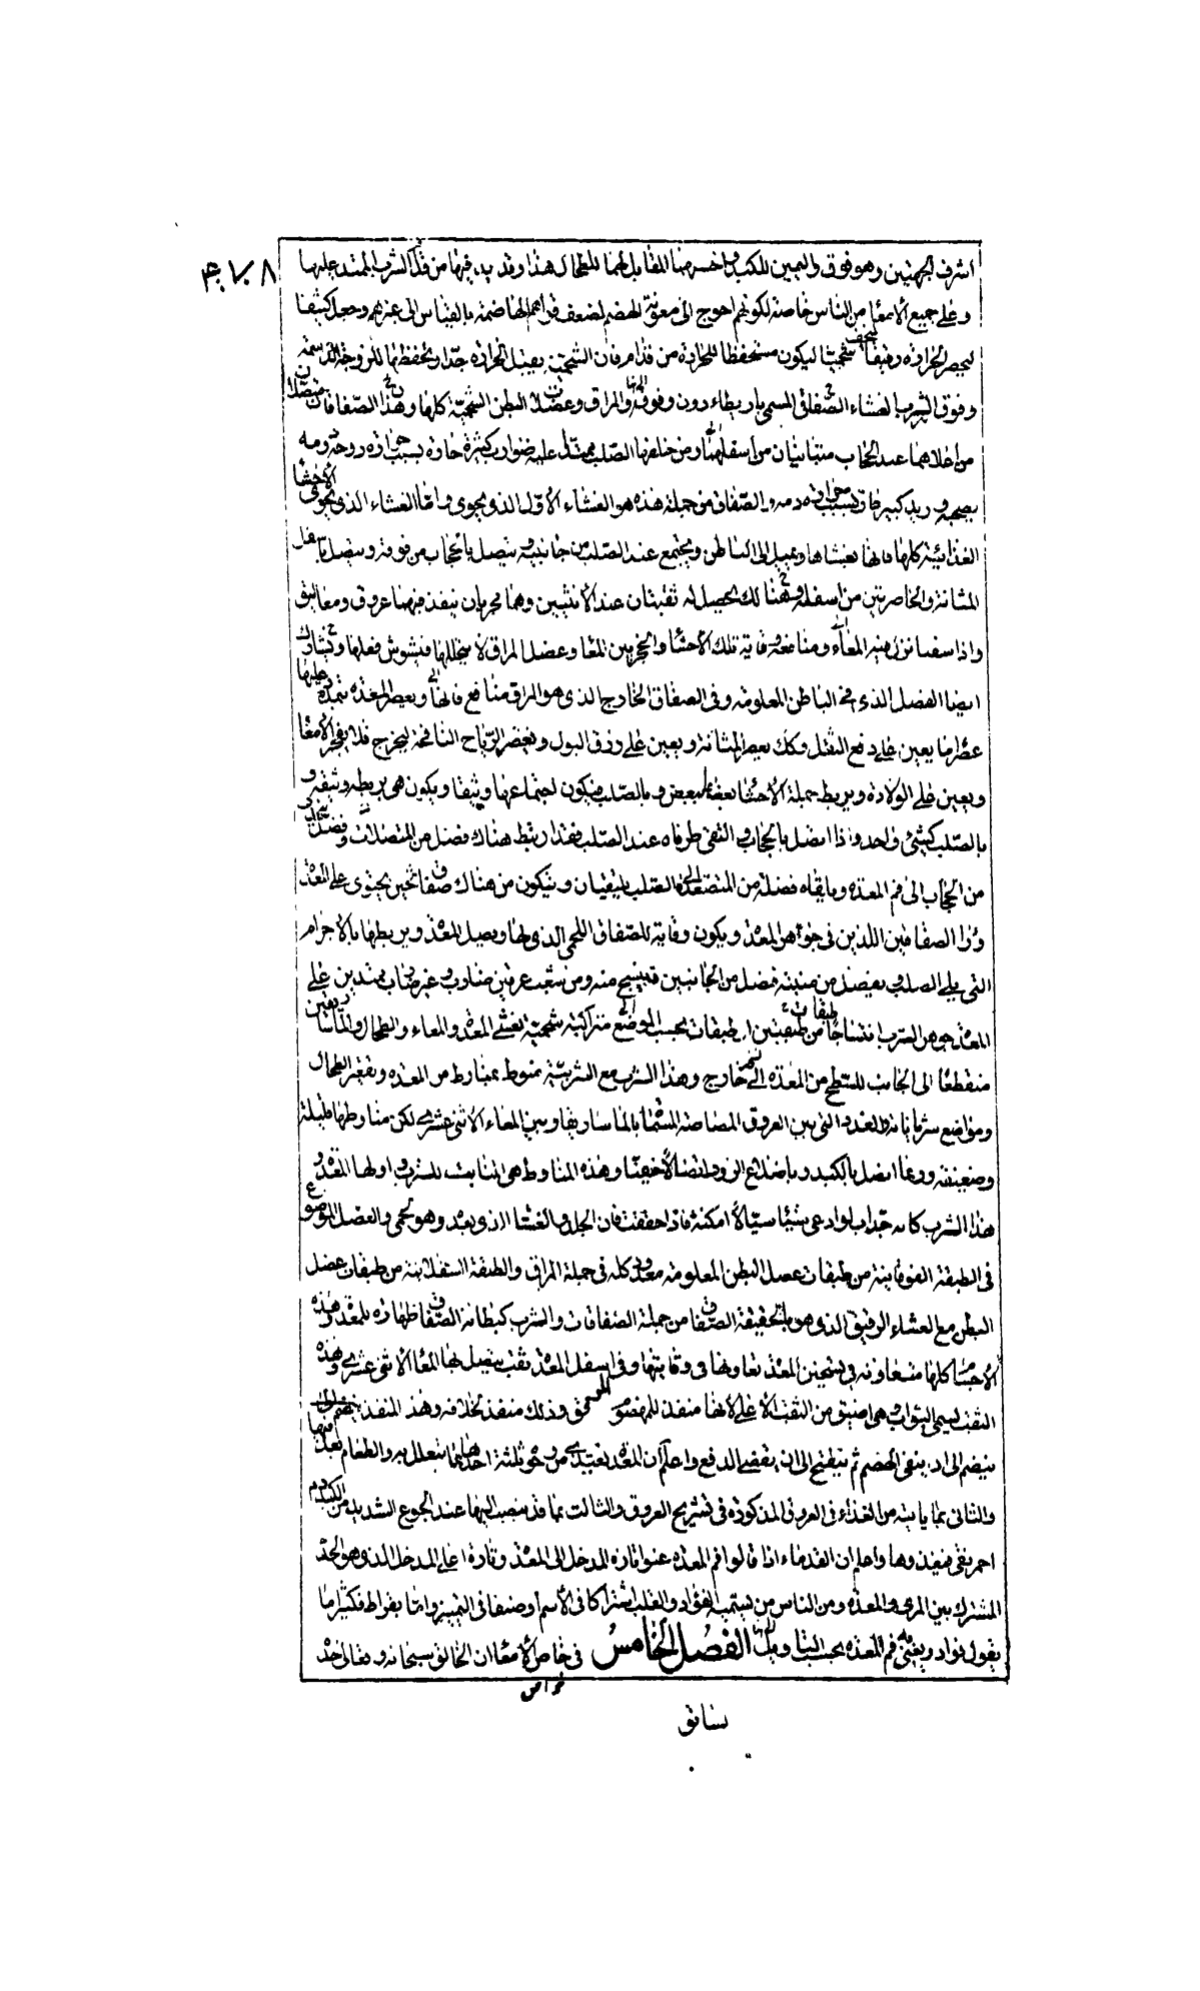 اشرف الجهتين وهو فوق واليمين للكبد واخسهما المقابل لهما للطحال هذا وقد يدفيها من قدام الثرب الممتد عليها
وعلى جميع الامعاء من الناس خاصة لكونهم احوج الى معونة الهضم لضعف قواهم الهاضمة بالقياس الى غيرهم وجعل كثيفا
ليحصر الحرارة رقيقا ليخف شحميا ليكون مستحفظا للحرارة من قدام فان الشحمية يقبل الحرارة جدا ويحفظها للزوجة الدسمة
وفوق الثرب الغشاء الصفاقي المسمى باريطاءرون وفوقه المراق وعضلات البطن الشحمية كلها وهذان الصفاقان متصلان
من اعلاهما عند الحجاب متباينان من اسفلهما ومن خلفها الصلب ممتدا عليه ضوارب كثيرة حارة بسبب حرارة روحه ودمه
يصحبه وريد كبير حار بسبب حرارة دمه والصفاق من جملة هذه هو الغشاء الاول الذي يحوى واما الغشاء الذي يحوى الاحشاء
الغذائية كلها فانها يغشاها ويميل الى الباطن ويجتمع عند الصلب من جانبيه ويتصل بالحجاب من فوقه ويتصل باسفل
المثانة والخاصرتين من اسفله وهنالك يحصل له ثقبتان عند الانثيين وهما مجريان ينفذ فيهما عروق ومعاليق
واذا اتسعا نزل فيه المعاء ومنافعه وقاية تلك الاحشاء والحجز بين المعا وعضل المراق لا يتخللها فيشوش فعلها وتشارك
ايضا العضل الذي في الباطن المعلومة وفي الصفاق الخارج الذي هو المراق منافع فانها يعصر المعدة بتمدده عليها
عصرا ما يعين على دفع الثفل وكك يعصر المثانة ويعين على زرق البول ويعصر الرياح النافخة ليخرج فلا يعجز الامعا
ويعين على الولادة ويربط جملة الاحشا بعضها ببعض وبالصلب فيكون اجتماعها وثيقا ويكون هي بربطه وثيقة و
بالصلب كشئ واحد واذا اتصل بالحجاب والتقى طرفاه عند الصلب فقد ارتبط هناك فضل من المتصلات وفضل ينحدر
من الحجاب الى فم المعدة وبايقاه فضلة من المتصعد الى الصلب يلتقيان ويتكون من هناك صفاق ثخين يحتوى على المعدة
وراء الصفاقين اللذين في جوهر المعدة ويكون وقاية للصفاق اللحمى الذي لها ويصل المعدة ويربطها بالاجرام
التي يلى الصلب ويفضل من منبته فضل من الجانبين فينسج منه ومن شعب عرقين ضارب وغير ضارب ممتدين على
المعدة جوهر الثرب انتساجا من طبقتين او طبقات بحسب المواضع متراكبة شحمية يغشى المعدة والمعاء والطحال والماساريقا
منقطعا الى الجانب المسطح من المعدة الى خارج وهذا الثرب مع الثربية منوط بمناوط من المعدة وتقعير الطحال
ومواضع شريانات والغدد التي بين العروق المصاصة المسماة بالماساريقا وبين المعاء الاثنى عشرى لكن مناوطها قليلة
وضعيفة وربما اتصل بالكبد وباضلاع الزور اتصالا خفيفا وهذه المناوط هي المنابت للثرب واولها المعدة و
هذا الثرب كانه جراب لو اوعى شيئا سيالا امكنه فاذا حققت فان الجلد والغشا الذي بعده وهو لحمى والعضل الموضوع
في الطبقة الفوقانية من طبقات عضل البطن المعلومة معدود كله في جملة المراق والطبقة السفلانية من طبقات عضل
البطن مع الغشاء الرقيق الذي هو بالحقيقة الصفاق من جملة الصفاقات والثرب كبطانة الصفاق ظهارة للمعدة وهذه
الاحشا كلها متعاونة في تسخين المعدة تعاونها في وقايتها وفي اسفل المعدة ثقب يتصل بها المعا الاثنى عشرى وهذه
الثقب ليسمى البواب وهي اضيق من الثقب الاعلى لانها منفذ للمهضوم المرقق وذلك منفذ لخلافه وهذ المنفذ ينضم الى
ينضم الى ان ينقضى الهضم ثم ينفتح الى ان يقضى الدفع واعلم ان المعدة يغتذى من وجوه ثلثة احدها بما يتعلل به والطعام يعد فيها
والثانى بما ياتيه من الغذاء في العروق المذكورة في تشريح العروق والثالث بما قد ينصب اليها عند الجوع الشديد من الكبد دم
احمر نقى فيغذوها واعلم ان القدماء اذا قالوا فم المعدة عنوا تارة المدخل الى المعدة وتارة اعلى المدخل الذي هو الحد
المشترك بين المرى والمعدة ومن الناس من يسميه الفؤاد والقلب اشتراكا في الاسم او ضعفا في التمييز واما بقراط فكثيرا ما
يقول فواد ويعنى به فم المعدة بحسب التاويل الفصل الخامس في تشريح الامعا ان الخالق سبحانه وتعالى جده
سابق